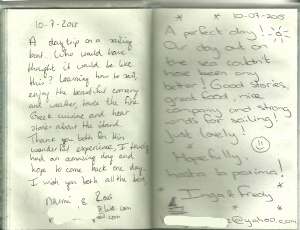 10-7-2013
A day trip on a sailing
boat... who would have
thought it would be like
this? Learning how to sail,
enjoy the beautiful scenery
and weather, taste the fine
Greek cuisine and hear
stories about the island.
Thank you both for this
wonderful experience, I truly
had an amazing day and
hope to come back one day.
I wish you both all the best,
Naomi &
@live.com
.com
10-07-2013
A perfect day!
Our day out on
the sea couldn't
have been any
better! Good stories,
great food, nice
company and strong
winds for sailing!
Just lovely!
Hopefully,
hasta la proxima!
Inga & Fredy
@yahoo.com